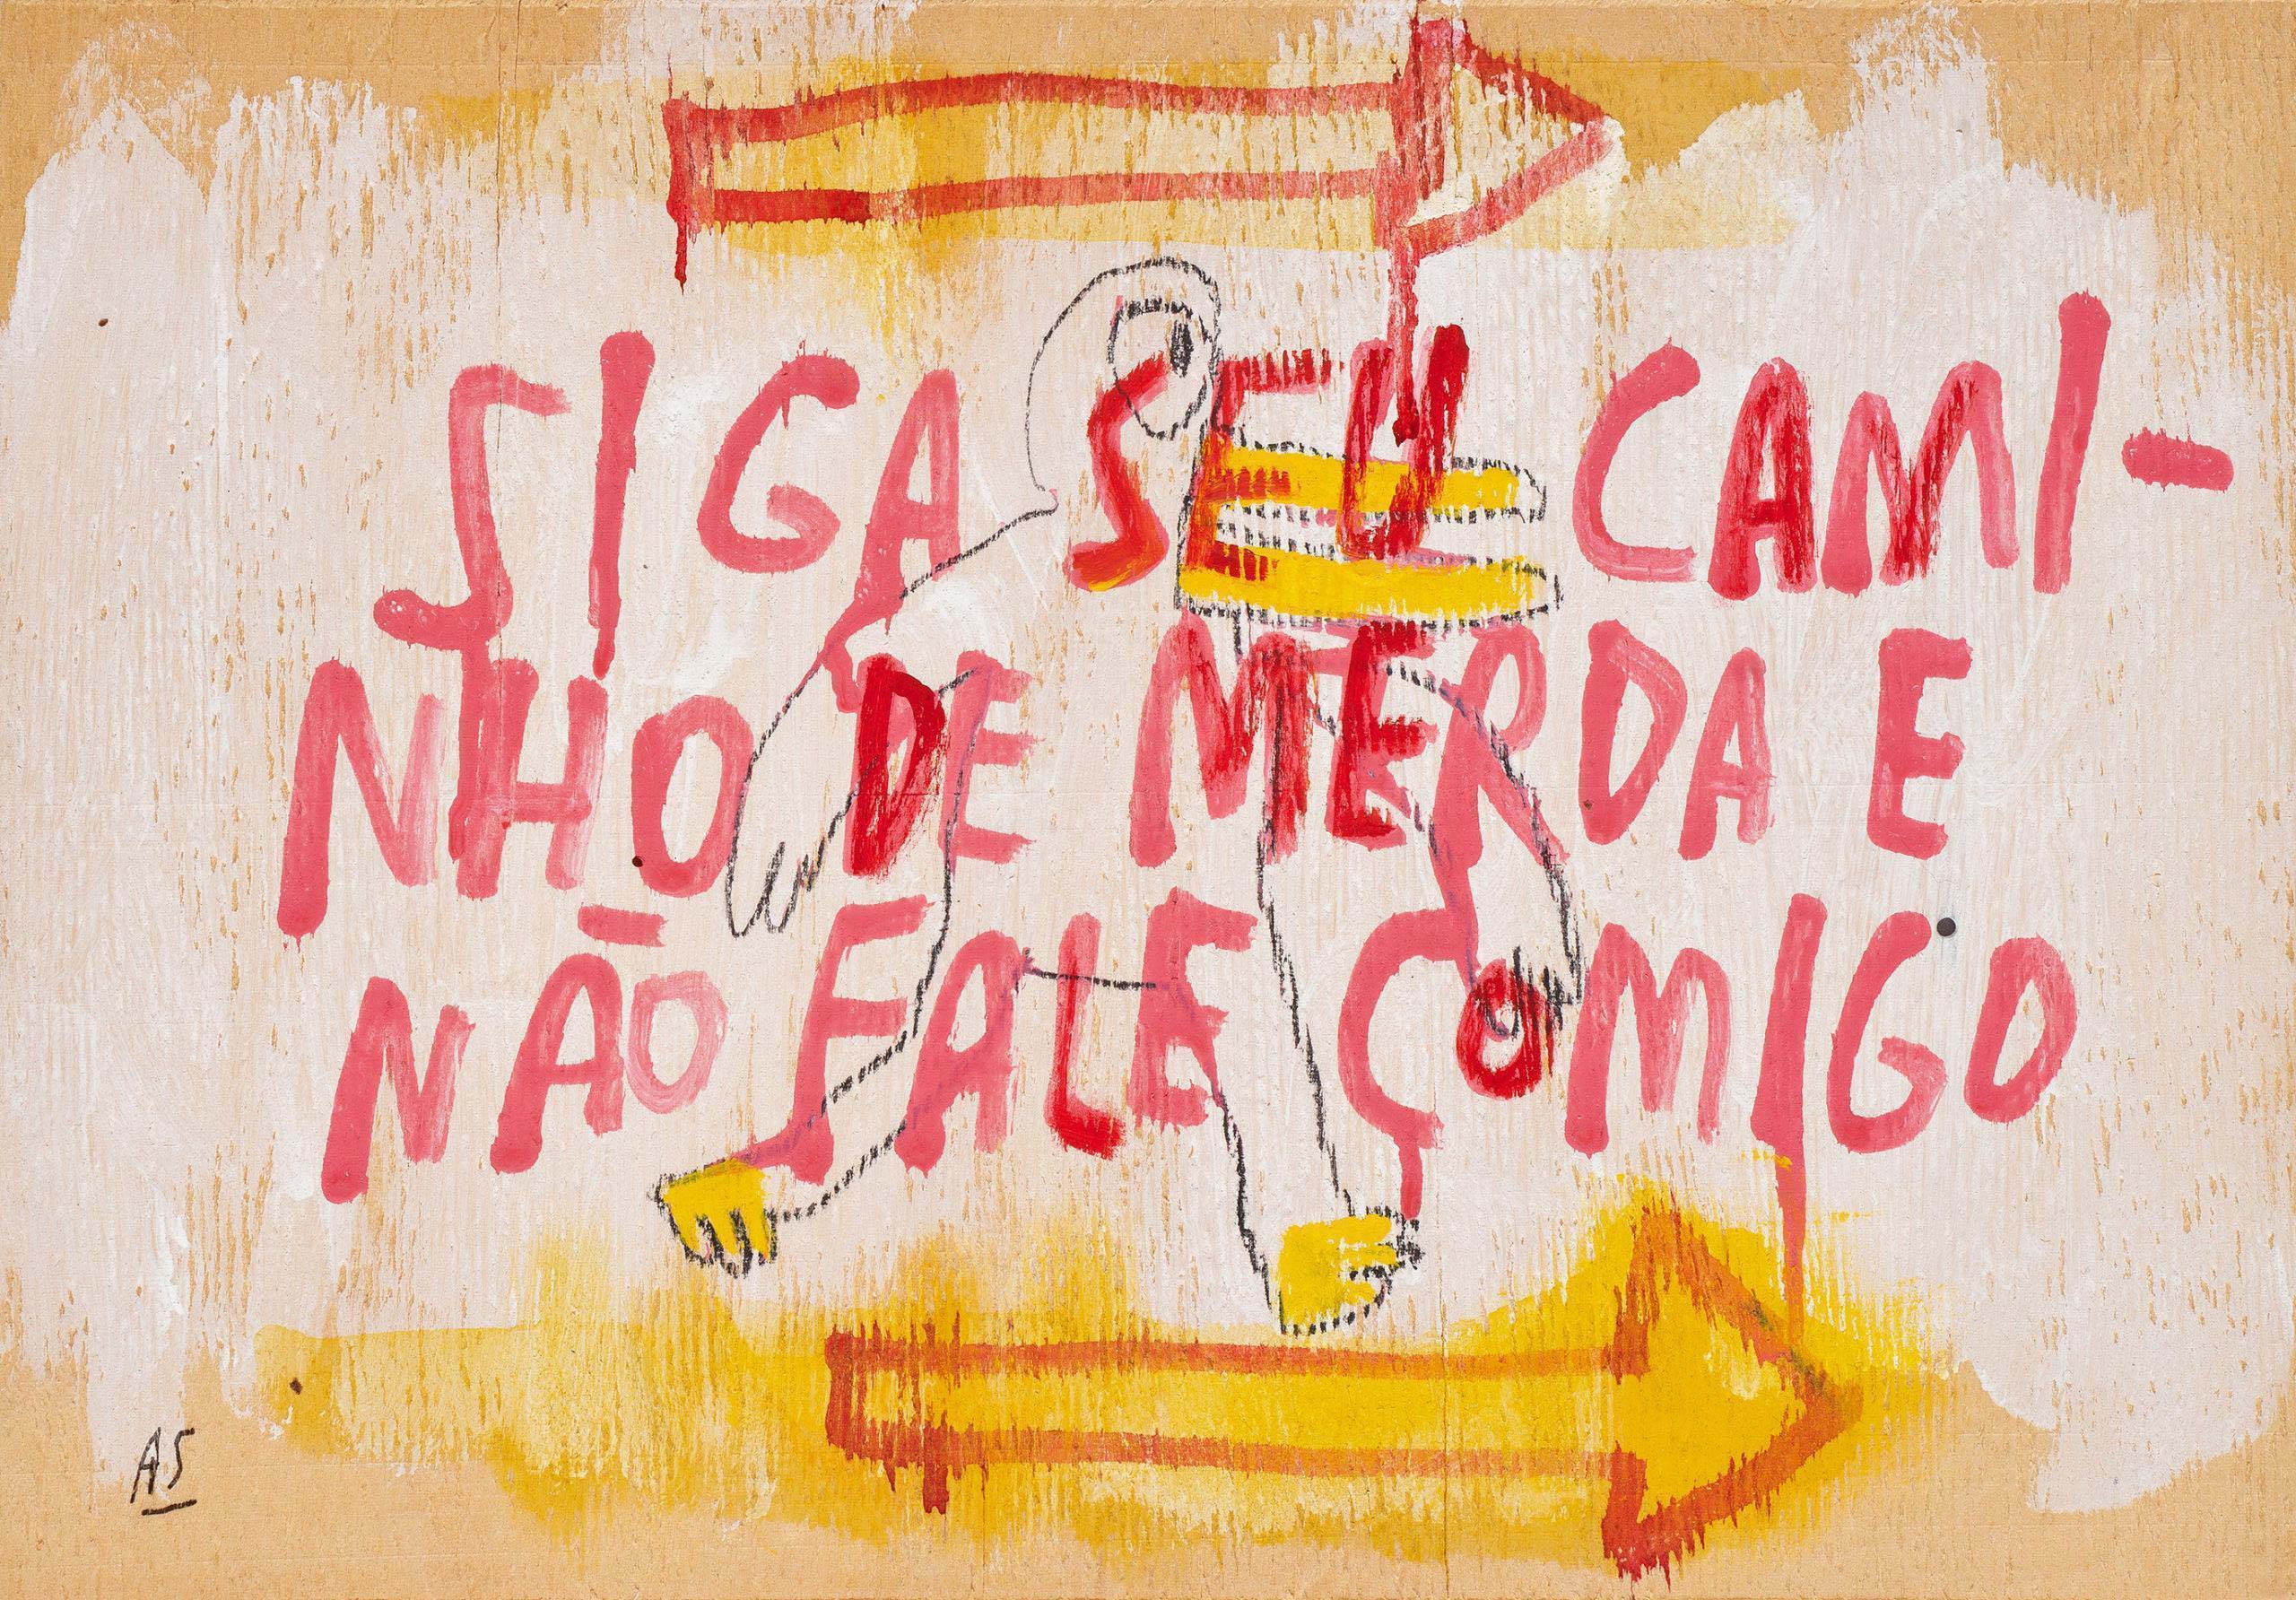 SIGA SEU CAMI-
NHO DE MERDA E
NÃO FALE COMIGO
AS